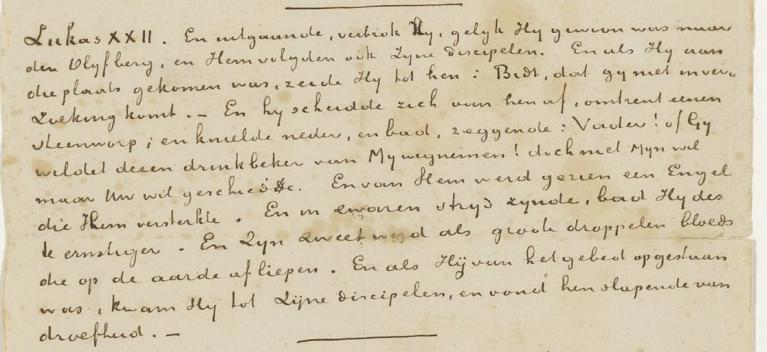 Lukas XXII. En uitgaande, vertrok Hy, gelyk Hy gewoon was naar
den Olyfberg, en Hem volgden ook Zyne discipelen. En als Hy aan
die plaats gekomen was, zeide Hy tot hen: Bidt, dat gy niet in ver-
zoeking komt. – En hy scheidde zich van hen af, omtrent eenen
steenworp; en knielde neder, en bad, zeggende: Vader! of Gy
wildet dezen drinkbeker van My wegnemen! doch niet Myn wil
maar Uw wil geschiede. En van Hem werd gezien een Engel
die Hem versterkte. En in zwaren stryd zynde, bad Hy des
te ernstiger. En Zyn zweet werd als groote droppelen bloeds
die op de aarde afliepen. En als Hy van het gebed opgestaan
was, kwam Hy tot Zyne discipelen, en vond hen slapende van
droefheid. –